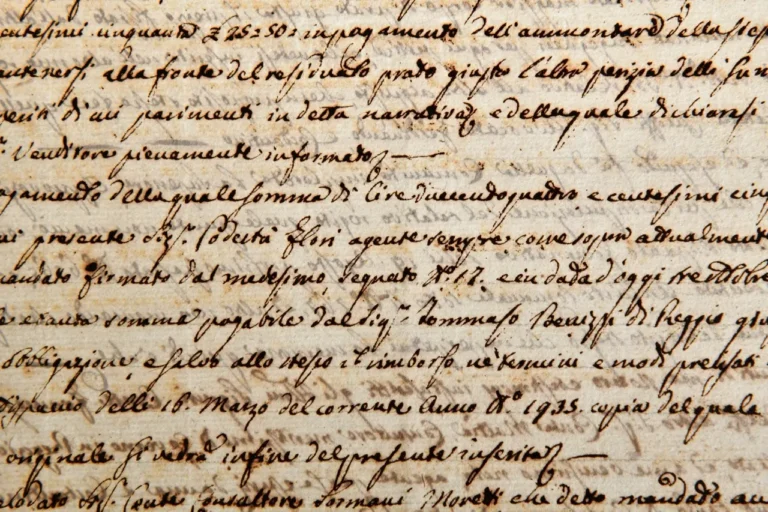 centesimi cinquanta £ 25=50= in pagamento dell'ammontare della step
alla fronte del residuato prato giusta l'altra perizia delli
di cui parimenti in detta narrativa, e della quale dichiarasi
Venditore pienamente informato —
agamento della quale somma di Lire duecentoquattro e centesimi cinq
presente Sig.r Podestà Flori agente sempre come sopra attualmente
mandato firmato dal medesimo, segnato N.o 17. e in data d'oggi tre Ottobre
e tanta somma pagabile dal Sig.r Tommaso di Reggio
obbligazione, e salvo allo stesso il rimborso ne' termini e modi
Dispaccio delli 16. Marzo del corrente Anno N.o 1935. copia del quale
originale si vedrà in fine del presente inserita —
elodato Sig.r Conte Consultore Sormani Moretti che detto mandato